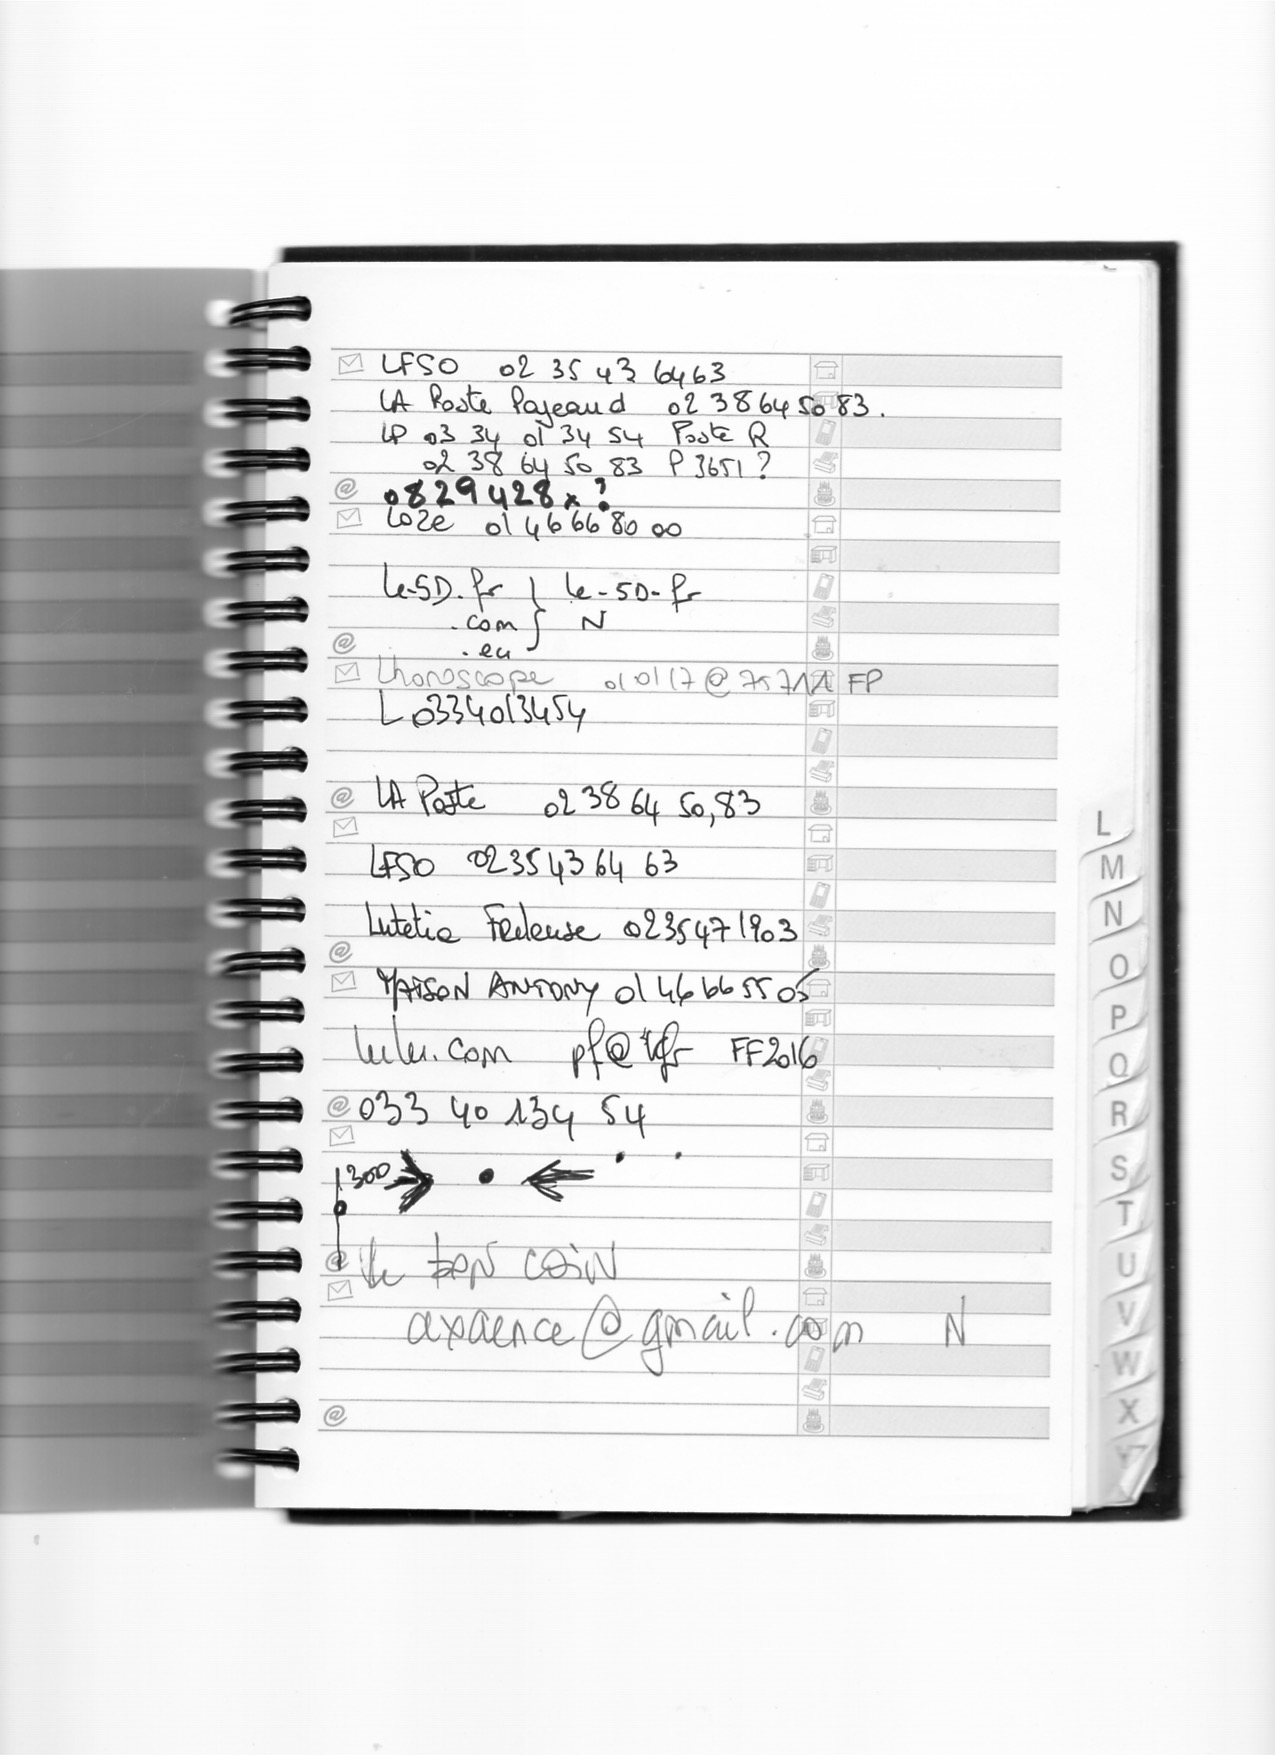 LFSO 02 35 43 64 63
LA Poste Pajeaud 02 38 64 50 83.
LP 03 34 01 34 54 Poste R
02 38 64 50 83 P 3651 ?
0829428x?
Loze 01 46 66 80 00
Le-5D.fr } Le-5D-fr
.com N
.eu
Lhoroscope 010117@75711 FP
L 0334013454
LA Poste 02 38 64 50,83
LFSO 02 35 43 64 63
Lutetia 0235471903
MAISON ANTONY 01 46 66 55 05
lulu.com pf@ FF2016
033 40 134 54
300
Le bon coin
axaence@gmail.com N
L
M
N
O
P
Q
R
S
T
U
V
W
X
Y